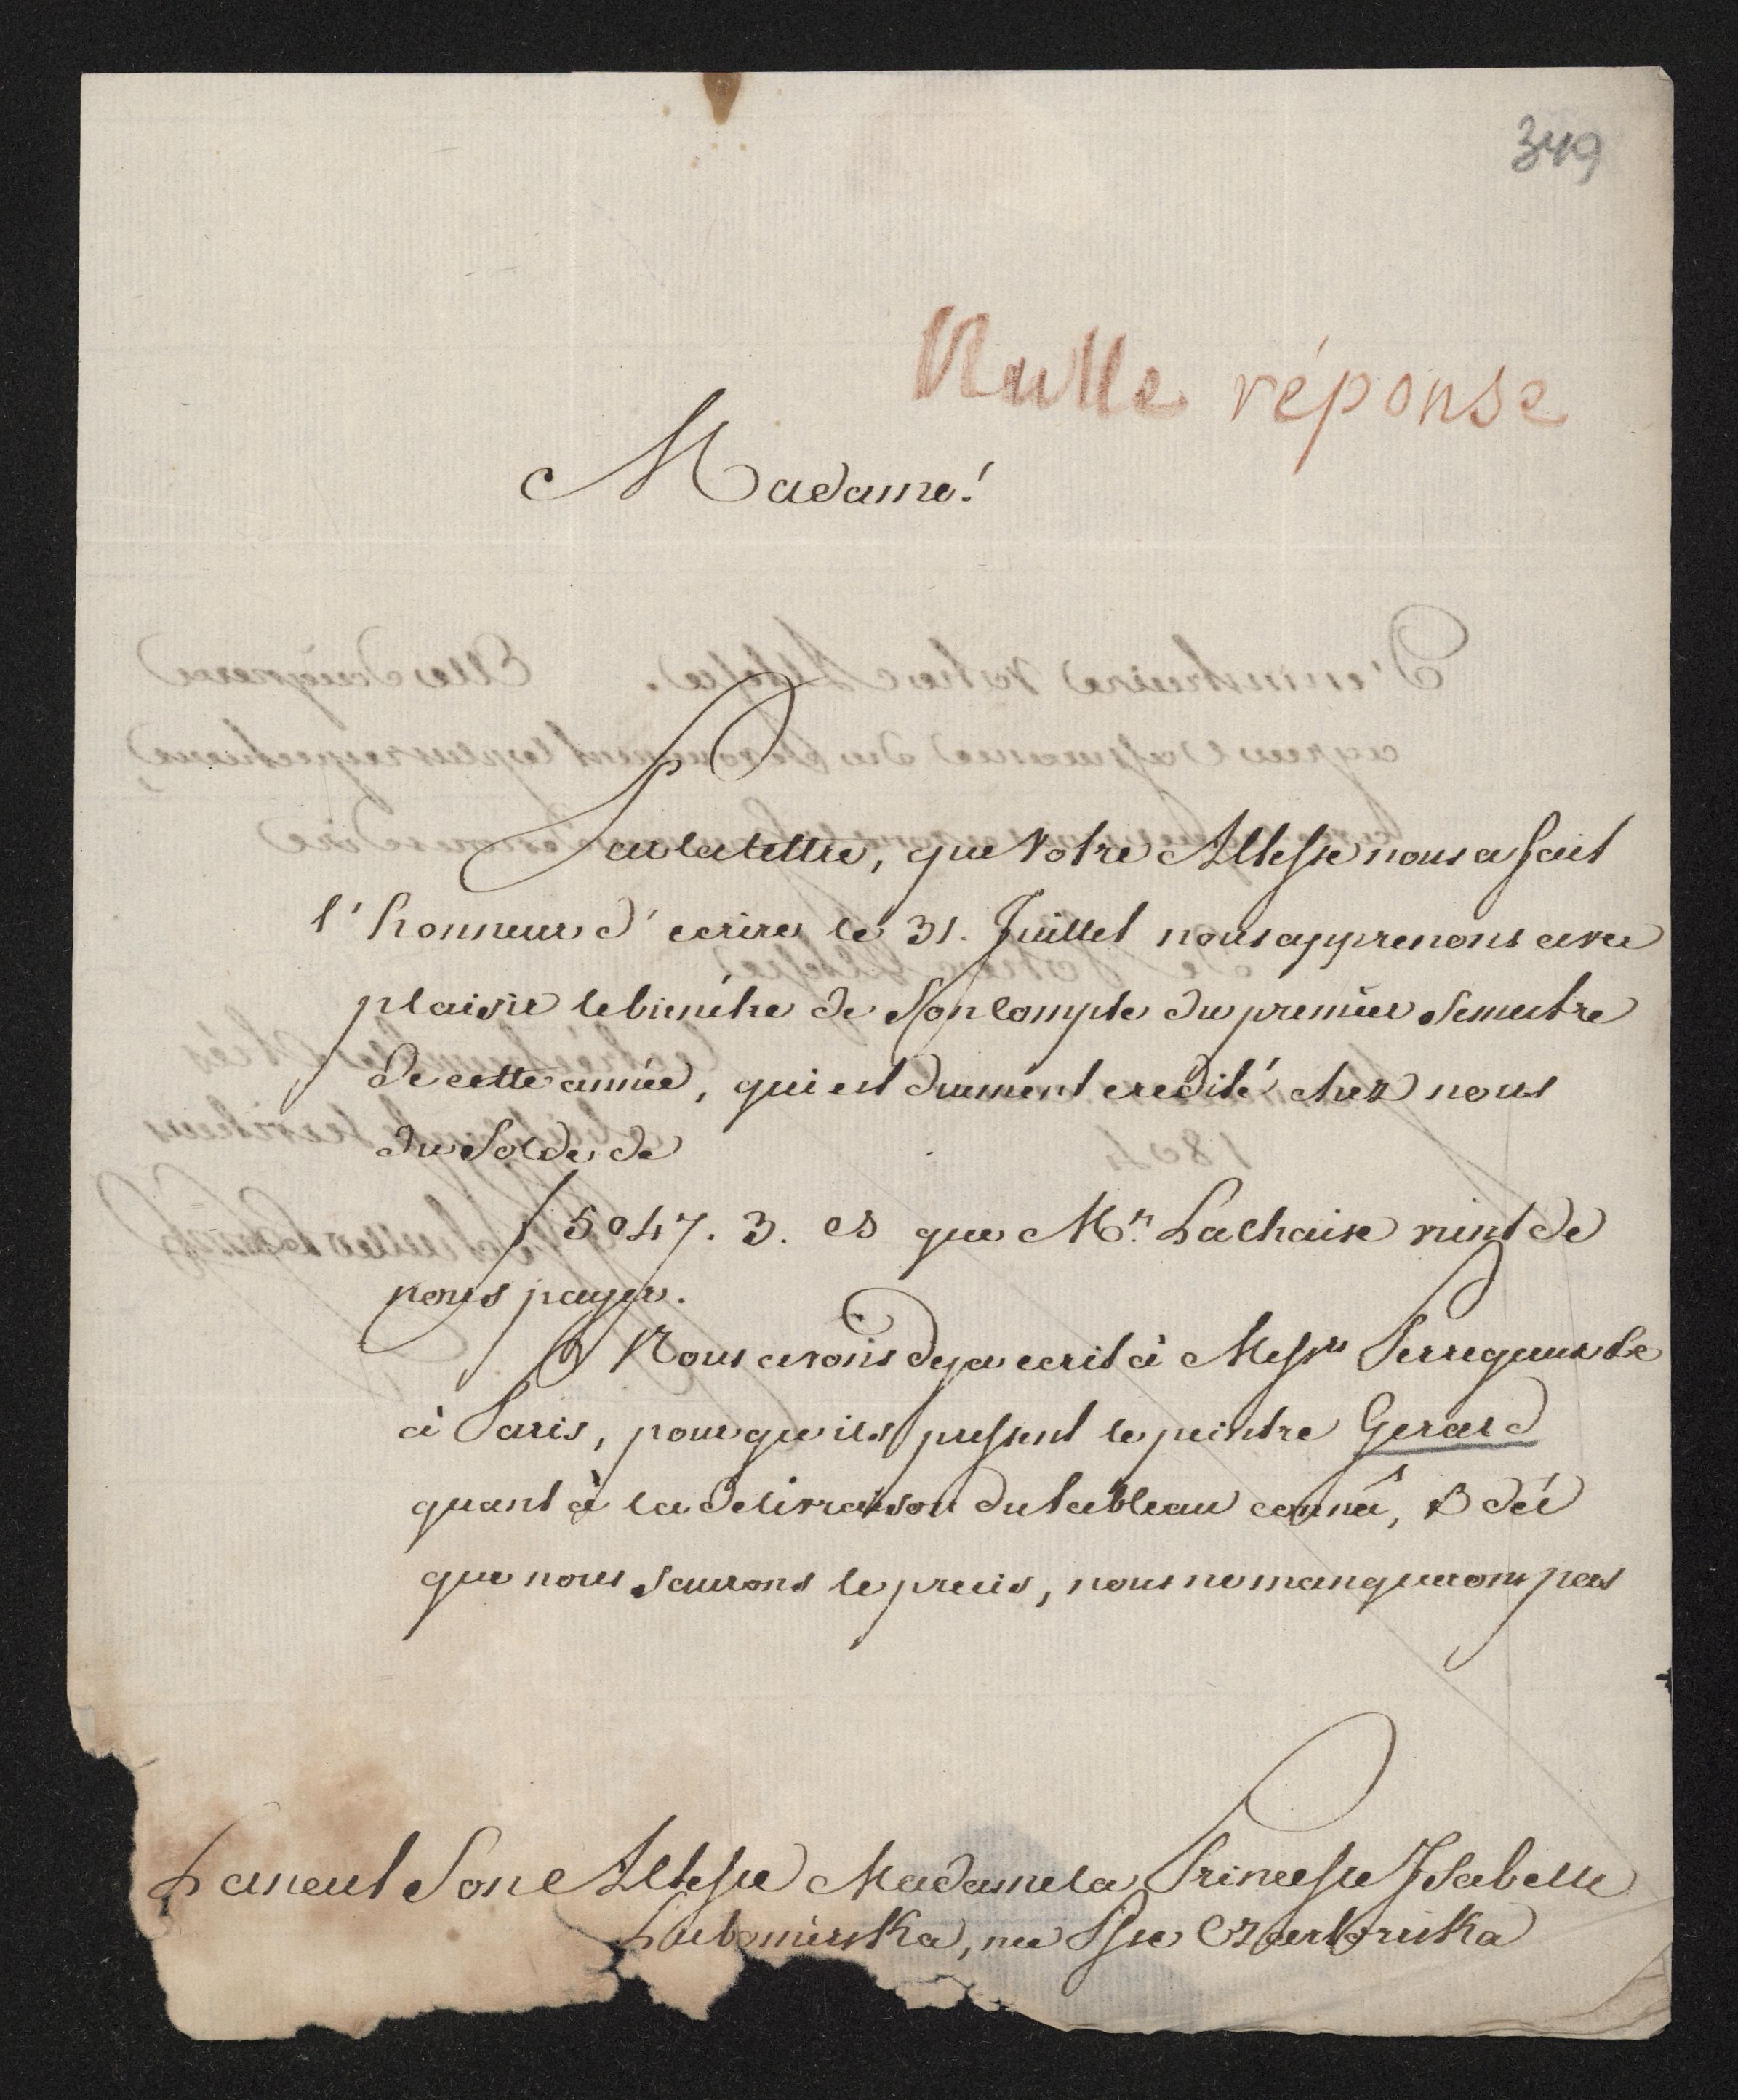 349
Nulle réponse
Madame!
Par la lettre, que Votre Altesse nous a fait
l'honneur d'ecrire le 31. Juillet nous apprenons avec
plaisir le bienêtre de Son Compte du premier Semestre
de cette année, qui est dument credité chez nous
du Solde de
f 5047. 3. es que Mr. Lachaise vient de
nous payer.
Nous avons deja ecrit à Messrs Perregaux &e
à Paris, pour qu'ils pressent le peintre Gerard
quant à la delivraison du tableau connû, & dès
que nous saurons le precis, nous ne manquerons pas
Lancut Son Altesse Madame la Princesse Isabelle
Lubomirska, neé Psse Czartoriska